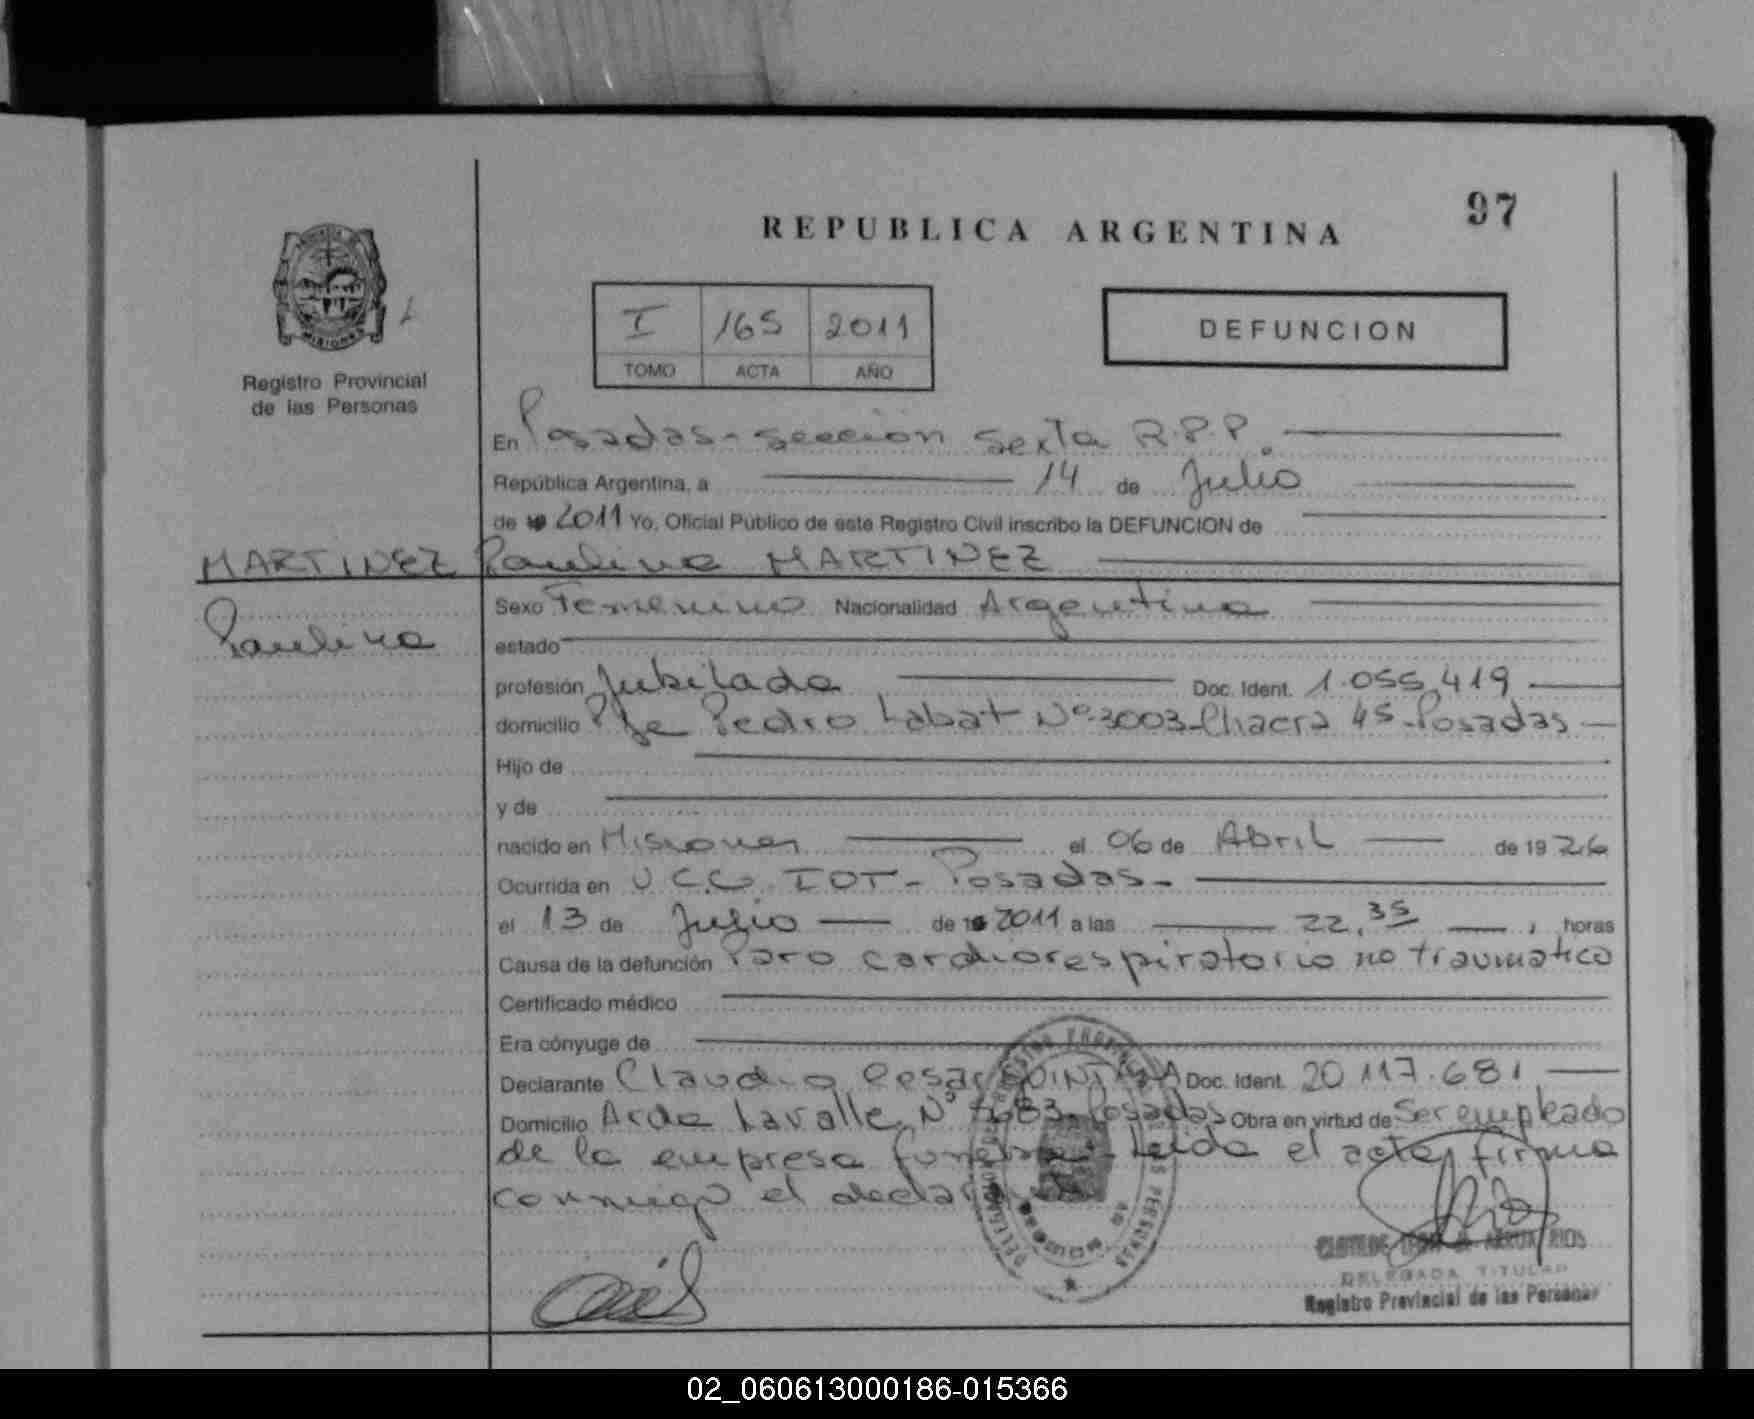 97
REPUBLICA ARGENTINA
MISIONES
Registro Provincial
de las Personas
I 165 2011
TOMO ACTA AÑO
DEFUNCION
En Posadas - Seccion Sexta R.P.P.
República Argentina, a 14 de Julio
de 2011 Yo, Oficial Público de este Registro Civil inscribo la DEFUNCION de
MARTINEZ Paulina MARTINEZ
Paulina
Sexo Femenino Nacionalidad Argentina
estado
profesión Jubilada Doc. Ident. 1.055.419
domicilio Pje Pedro Labat Nº 3003 - Chacra 45 - Posadas
Hijo de
y de
nacido en Misiones el 06 de Abril de 1926
Ocurrida en U.C.O. IOT - Posadas -
el 13 de Julio de 2011 a las 22,35, horas
Causa de la defunción Paro cardiorespiratorio no traumatico
Certificado médico
Era cónyuge de
Declarante Claudio Cesar QUINTANA Doc. Ident. 20.117.681
Domicilio Avda Lavalle Nº Posadas Obra en virtud de Ser empleado
de la empresa funebre - Leida el acta, firma
conmigo el declarante
DELEGADA TITULAR
Registro Provincial de las Personas
02_060613000186-015366